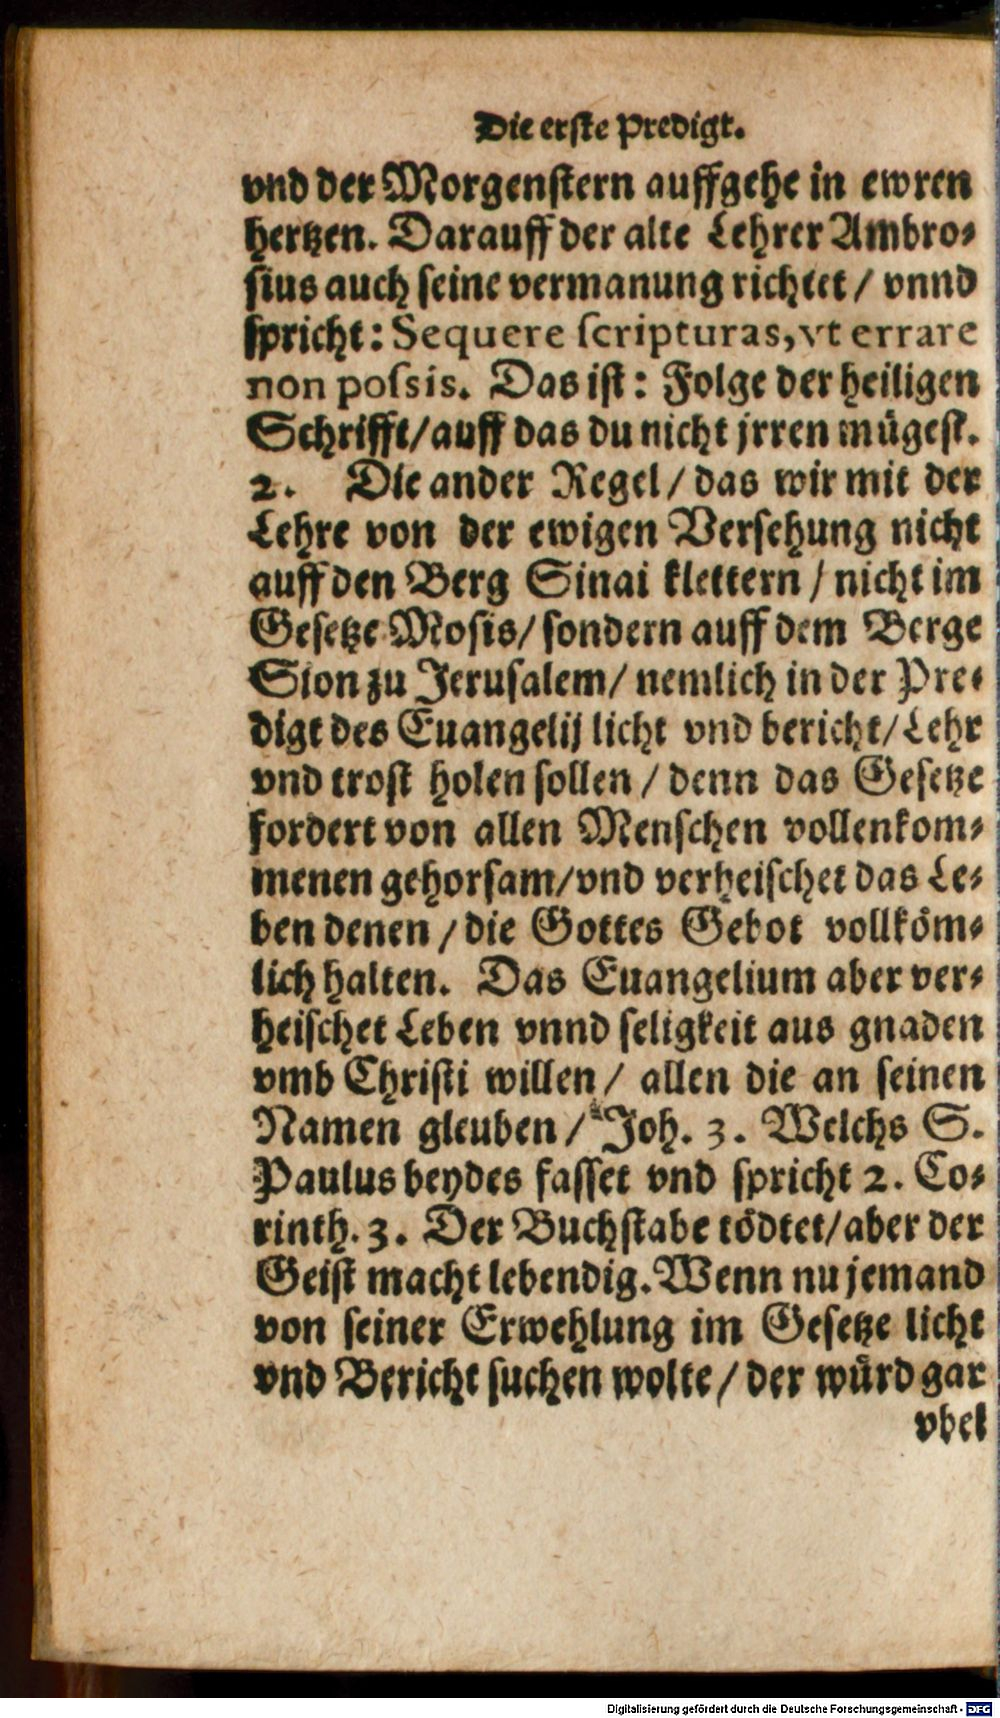 Die erste Predigt.
vnd der Morgenstern auffgehe in ewren
hertzen. Darauff der alte Lehrer Ambro⸗
sius auch seine vermanung richtet / vnnd
spricht: Sequere scripturas, vt errare
non possis. Das ist: Folge der heiligen
Schrifft/ auff das du nicht jrren mügest.
2. Die ander Regel / das wir mit der
Lehre von der ewigen Versehung nicht
auff den Berg Sinai klettern / nicht im
Gesetze Mosis/ sondern auff dem Berge
Sion zu Jerusalem/ nemlich in der Pre⸗
digt des Euangelij licht vnd bericht/ Lehr
vnd trost holen sollen / denn das Gesetze
fordert von allen Menschen vollenkom⸗
menen gehorsam/vnd verheischet das Le⸗
ben denen / die Gottes Gebot vollköm⸗
lich halten. Das Euangelium aber ver⸗
heischet Leben vnnd seligkeit aus gnaden
vmb Christi willen / allen die an seinen
Namen gleuben / Joh. 3. Welchs S.
Paulus beydes fasset vnd spricht 2. Co⸗
rinth. 3. Der Buchstabe tödtet/ aber der
Geist macht lebendig. Wenn nu jemand
von seiner Erwehlung im Gesetze licht
vnd Bericht suchen wolte / der würd gar
vbel
Digitalisierung gefördert durch die Deutsche Forschungsgemeinschaft - DFG